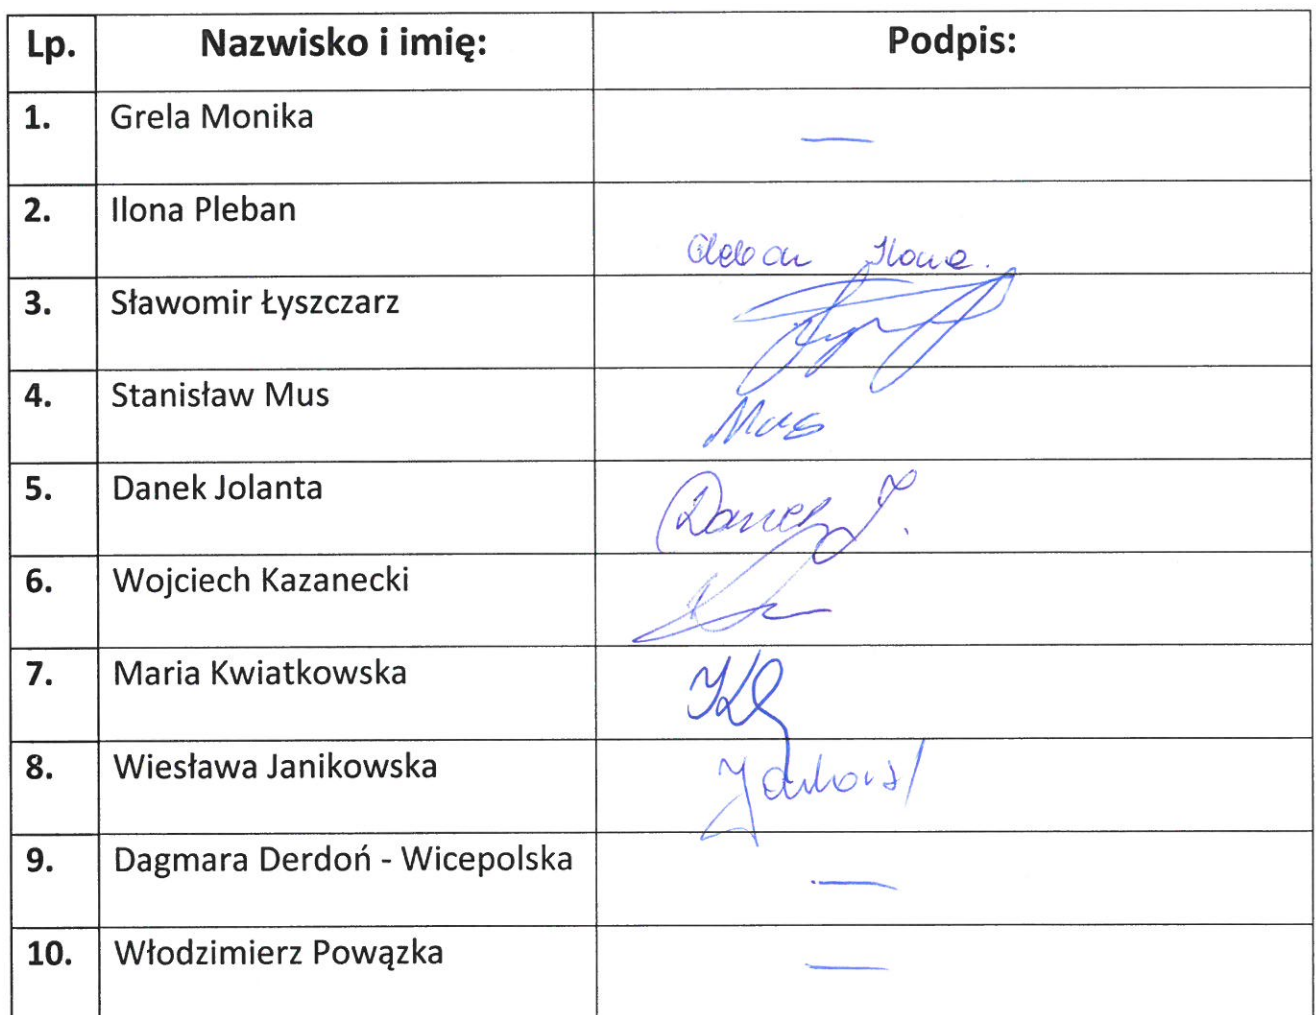 Lp. Nazwisko i imię: Podpis:
1. Grela Monika —
2. Ilona Pleban Pleban Ilona.
3. Sławomir Łyszczarz
4. Stanisław Mus Mus
5. Danek Jolanta Danek J.
6. Wojciech Kazanecki
7. Maria Kwiatkowska
8. Wiesława Janikowska
9. Dagmara Derdoń - Wicepolska —
10. Włodzimierz Powązka —